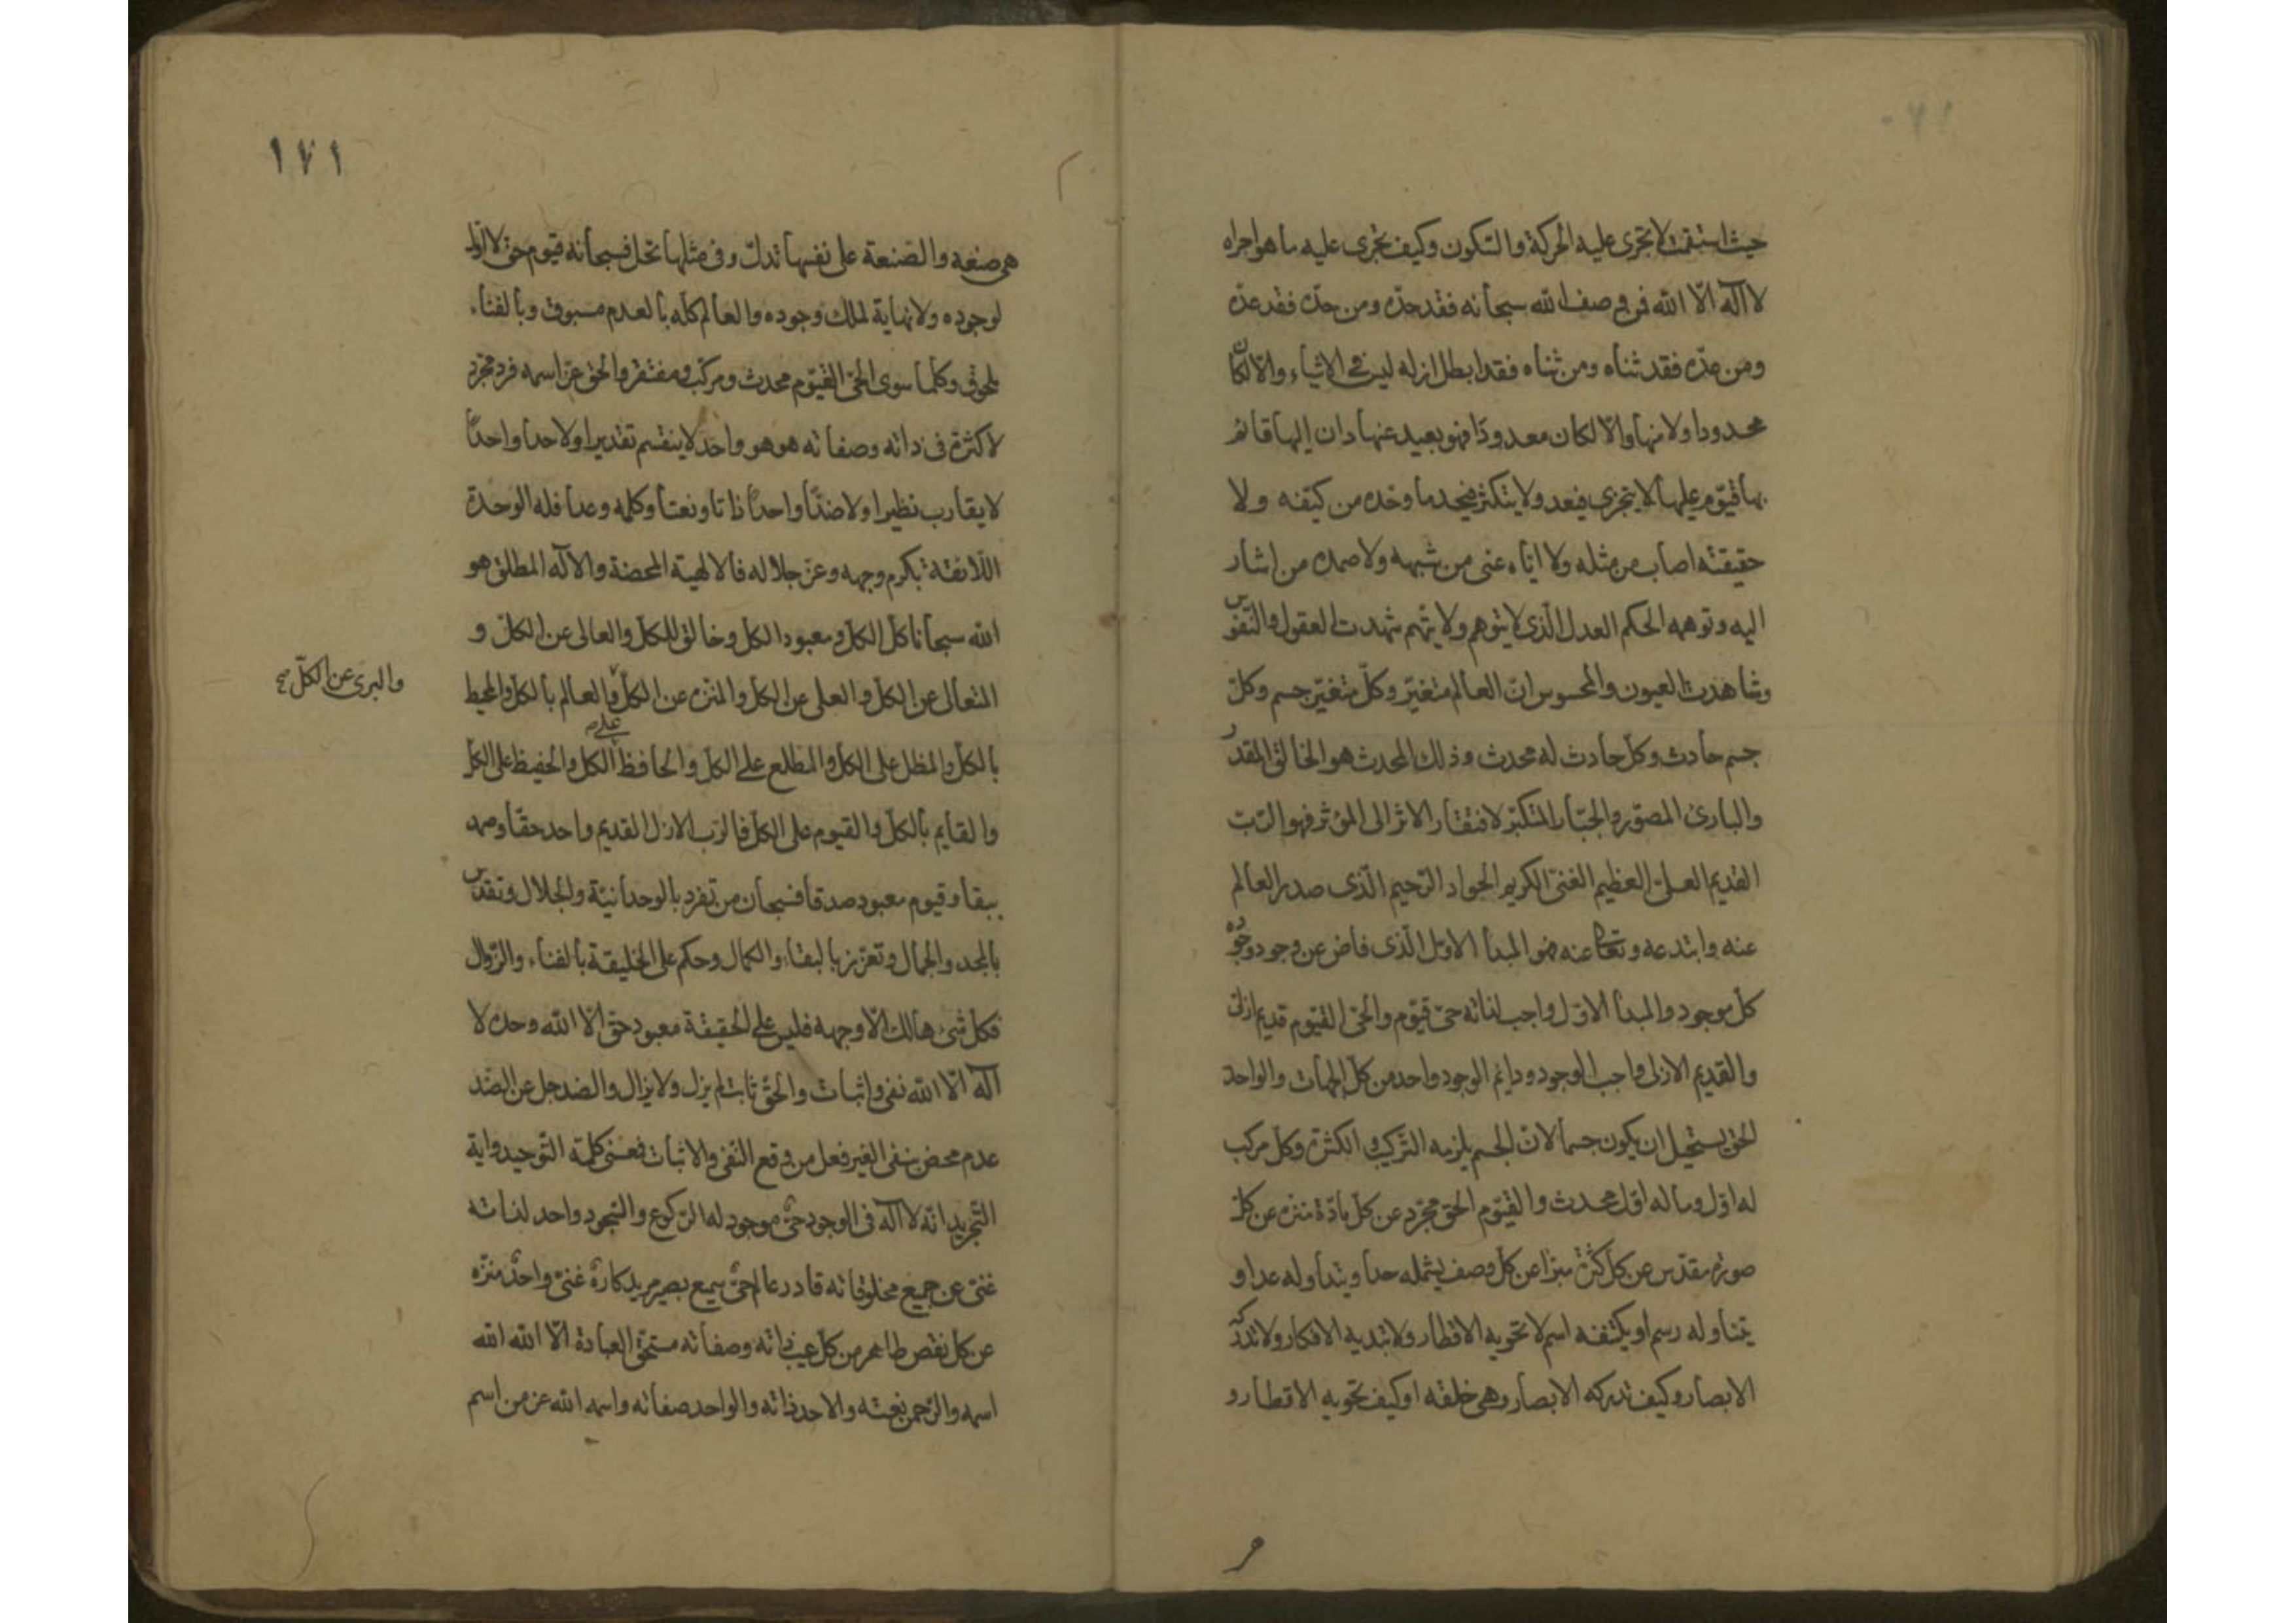 حيث استقت لا تجرى عليه الحركة والتكون وكيف تجرى عليه ما هو اجراه
لا اله الا الله فمن وصف الله سبحانه فقد حده ومن حده فقد عده
ومن عده فقد ثناه ومن ثناه فقد ابطل ازله ليس فى الاشياء والا لكان
محدودا ولا منها والا لكان معدودا فهو بعيد عنها دان اليها قائم
بها قيوم عليها لا يتجزى فيعد ولا يتكثر فيحد ما وحده من كيفه ولا
حقيقته اصاب من مثله ولا اياه عنى من شبهه ولا صمده من اشار
اليه وتوهمه الحكم العدل الذى لا يتوهم ولا يتهم شهدت العقول والنفوس
وشاهدت العيون والمحسوس ان العالم متغير وكل متغير جسم وكل
جسم حادث وكل حادث له محدث وذلك المحدث هو الخالق المقدر
والبارئ المصور والجبار المتكبر لافتقار الاثر الى المؤثر فهو الرب
القديم العلى العظيم الغنى الكريم الجواد الرحيم الذى صدر العالم
عنه وابتدعه عنه هو المبدأ الاول الذى فاض عن وجود وجوده
كل موجود والمبدأ الاول واجب لذاته حى قيوم والحى القيوم قديم ازلى
والقديم الازلى واجب الوجود ودايم الوجود واحد من كل الجهات والواحد
الحق يستحيل ان يكون جسما لان الجسم يلزمه التركيب والكثرة وكل مركب
له اول وما له اول محدث والقيوم الحق مجرد عن كل مادة منزه عن كل
صورة مقدس عن كل كثرة مبرا عن كل وصف يشمله حدا ويتداوله عدا و
يتناوله رسم او يكتنفه اسم لا تحويه الاقطار ولا تبديه الافكار ولا تدركه
الابصار وكيف تدركه الابصار وهى خلقه او كيف تحويه الاقطار و
١٧١
هى صنعه والصنعة على نفسها تدل وفى مثلها تحل فسبحانه قيوم حق لا اول
لوجوده ولا نهاية لملك وجوده والعالم كله بالعدم مسبوق وبالفناء
ملحوق وكلما سوى الحى القيوم محدث ومركب ومفتقر والحق عز اسمه فرد مجرد
لا كثرة فى ذاته وصفاته هو هو واحد لا ينقسم تقديرا ولا حدا واحدا
لا يقارب نظيرا ولا ضدا واحدا ذاتا ونعتا وكلمه وعدا فله الوحدة
اللائقة بكرم وجهه وعز جلاله فالالهية المحضة والاله المطلق هو
الله سبحانه كل الكل ومعبود الكل وخالق للكل والعالى عن الكل و
المتعالى عن الكل والعلى عن الكل والمنزه عن الكل والعالم بالكل والمحيط
والبرى عن الكل صح
بالكل والمظل على الكل والمطلع على الكل والحافظ على الكل والحفيظ على الكل
والقايم بالكل والقيوم على الكل فالرب الازل القديم واحد حقا وصمد
يبقا وقيوم معبود صدقا فسبحان من تفرد بالوحدانية والجلال وتقدس
بالمجد والجمال وتعزز بالبقاء والكمال وحكم على الخليقة بالفناء والزوال
فكل شئ هالك الا وجهه فليس على الحقيقة معبود حق الا الله وحده لا
اله الا الله نفى واثبات والحق ثابت لم يزل ولا يزال والضد جل عن الضد
عدم محض ينفى الغير فعل من وقع النفى والاثبات فمعنى كلمة التوحيد واية
التجريد انه لا اله فى الوجود حى موجود له الركوع والسجود واحد لذاته
غنى عن جميع مخلوقاته قادر عالم حى سميع بصير مريد كاره غنى واحد منزه
عن كل نقص طاهر من كل عيب ذاته وصفاته مستحق العبادة الا الله الله
اسمه والرحمن نعته والاحد ذاته والواحد صفاته واسمه الله عز من اسم